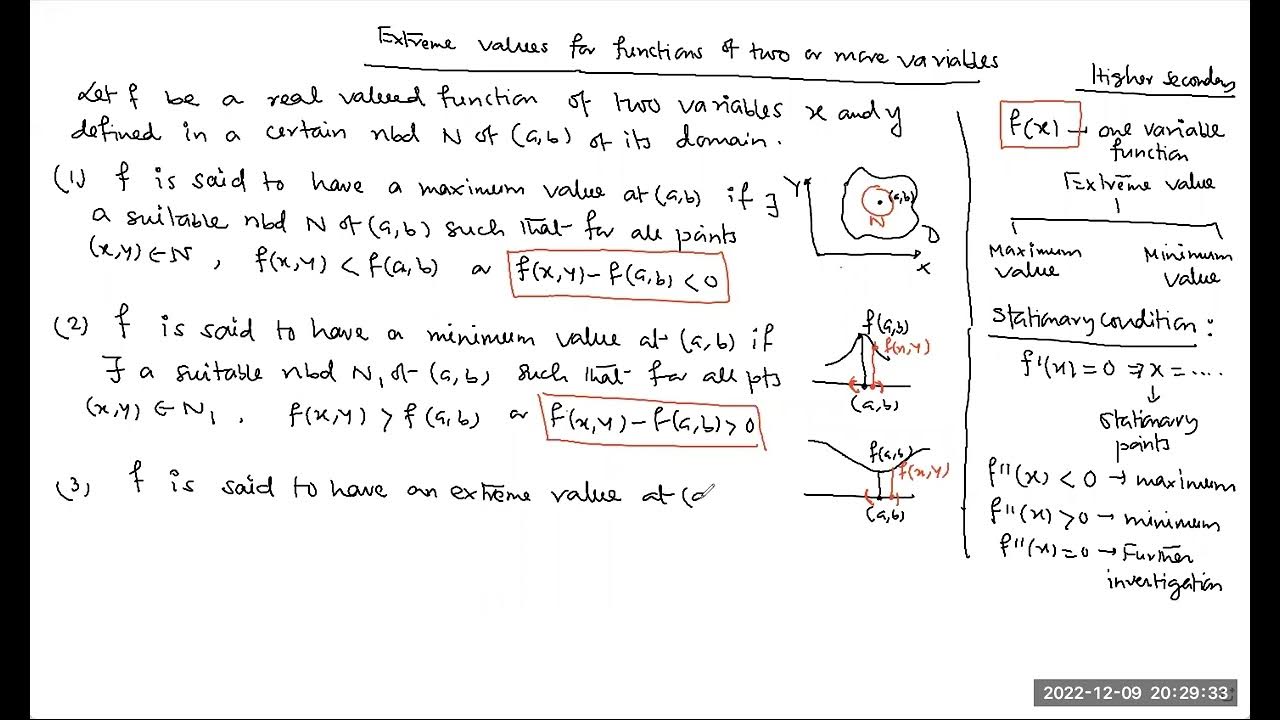 Extreme values for functions of two or more variables
Let f be a real valued function of two variables x and y
defined in a certain nbd N of (a,b) of its domain.
(1) f is said to have a maximum value at (a,b) if ∃
a suitable nbd N of (a,b) such that for all points
(x,y) ∈ N , f(x,y) < f(a,b) or f(x,y) - f(a,b) < 0
(2) f is said to have a minimum value at (a,b) if
∃ a suitable nbd N₁ of (a,b) such that for all pts
(x,y) ∈ N₁ , f(x,y) > f(a,b) or f(x,y) - f(a,b) > 0
(3) f is said to have an extreme value at (a
Y
(a,b)
N
D
X
f(a,b)
f(x,y)
(a,b)
f(a,b)
f(x,y)
(a,b)
Higher secondary
f(x) → one variable
function
Extreme value
Maximum value
Minimum value
Stationary condition :
f'(x) = 0 ⇒ x = ....
↓
stationary
points
f''(x) < 0 → maximum
f''(x) > 0 → minimum
f''(x) = 0 → Further
invertigation
2022-12-09 20:29:33